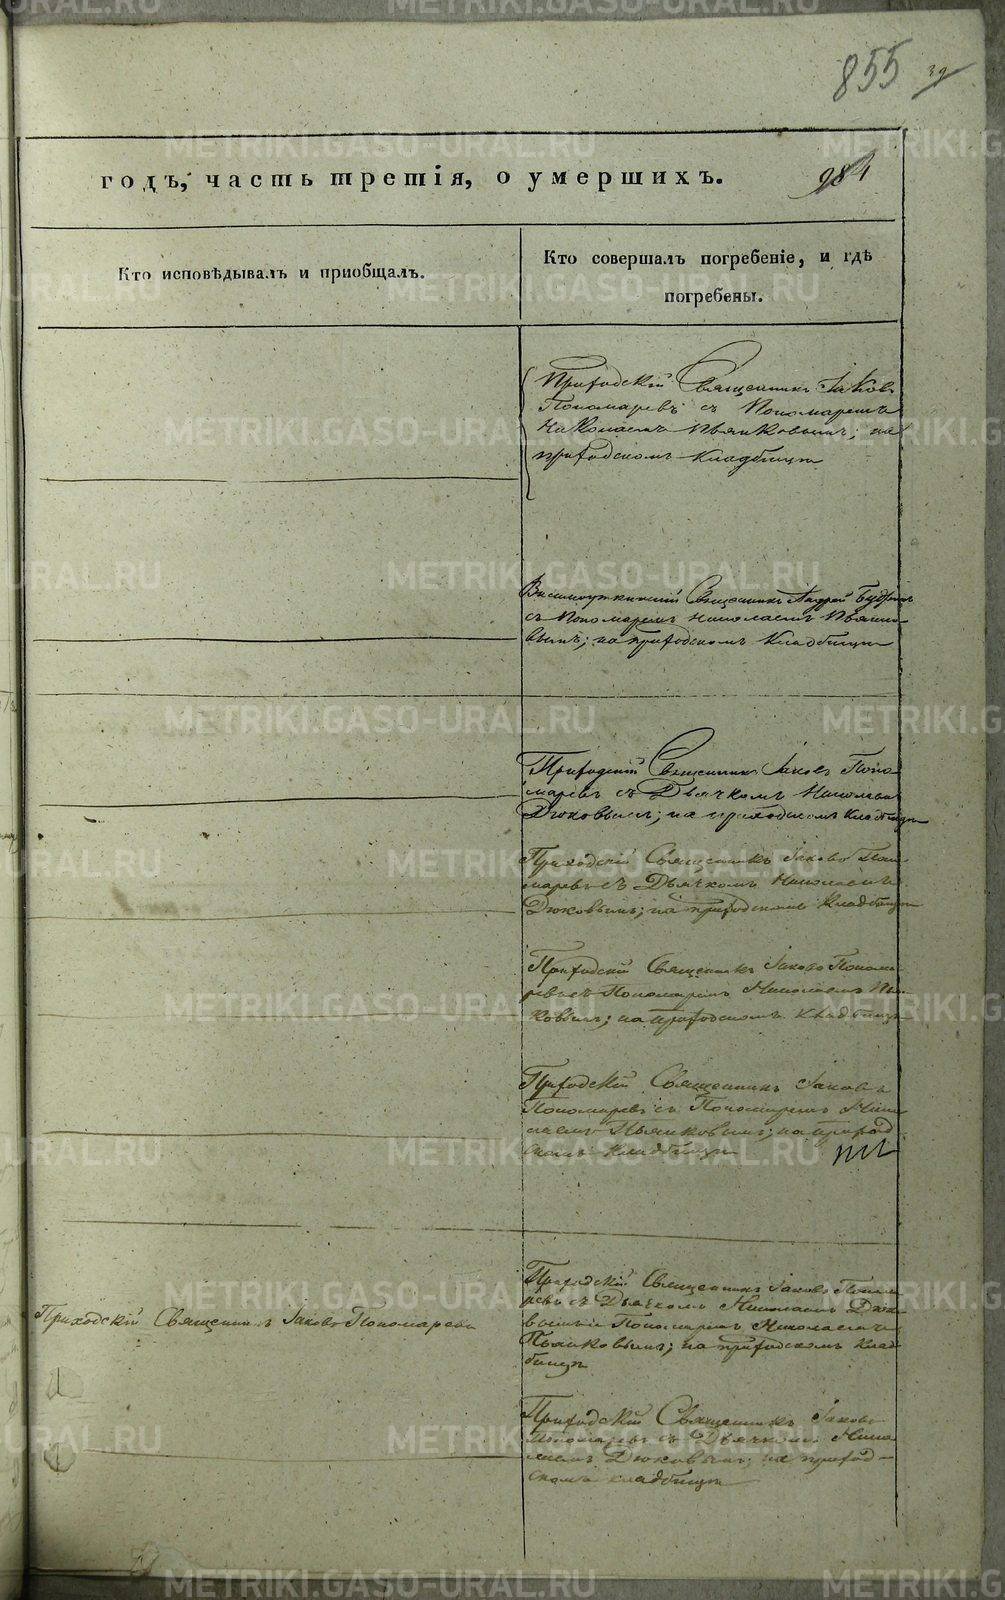 855 39
984
годъ, часть третія, о умершихъ.
Кто исповѣдывалъ и пріобщалъ.
Кто совершалъ погребеніе, и гдѣ
погребены.
Приходскій Священникъ Іаковъ
Пономаревъ съ Пономаремъ
Николаемъ Пьянковымъ; на
приходскомъ кладбищѣ
Висимоуткинскій Священникъ Андрей
съ Пономаремъ Николаемъ Пьянко-
вымъ; на приходскомъ кладбищѣ
Приходскій Священникъ Іаковъ Поно
маревъ съ Дьячкомъ Николаемъ
Дюковымъ; на приходскомъ кладбищѣ
Приходскій Священникъ Іаковъ Поно-
маревъ съ Дьячкомъ Николаемъ
Дюковымъ; на приходскомъ кладбищѣ
Приходскій Священникъ Іаковъ Понома
ревъ съ Пономаремъ Николаемъ Пьян
ковымъ; на приходскомъ кладбищѣ
Приходскій Священникъ Іаковъ
Пономаревъ съ Пономаремъ Нико
лаемъ Пьянковымъ; на приход
скомъ кладбищѣ
Приходскій Священникъ Іаковъ Пономаревъ
Приходскій Священникъ Іаковъ Понома
ревъ съ Дьячкомъ Николаемъ Дюко
вымъ и Пономаремъ Николаемъ
Пьянковымъ; на приходскомъ клад
бищѣ
Приходскій Священникъ Іаковъ
Пономаревъ съ Дьячкомъ Нико
лаемъ Дюковымъ; на приход-
скомъ кладбищѣ
METRIKI.GASO-URAL.RU